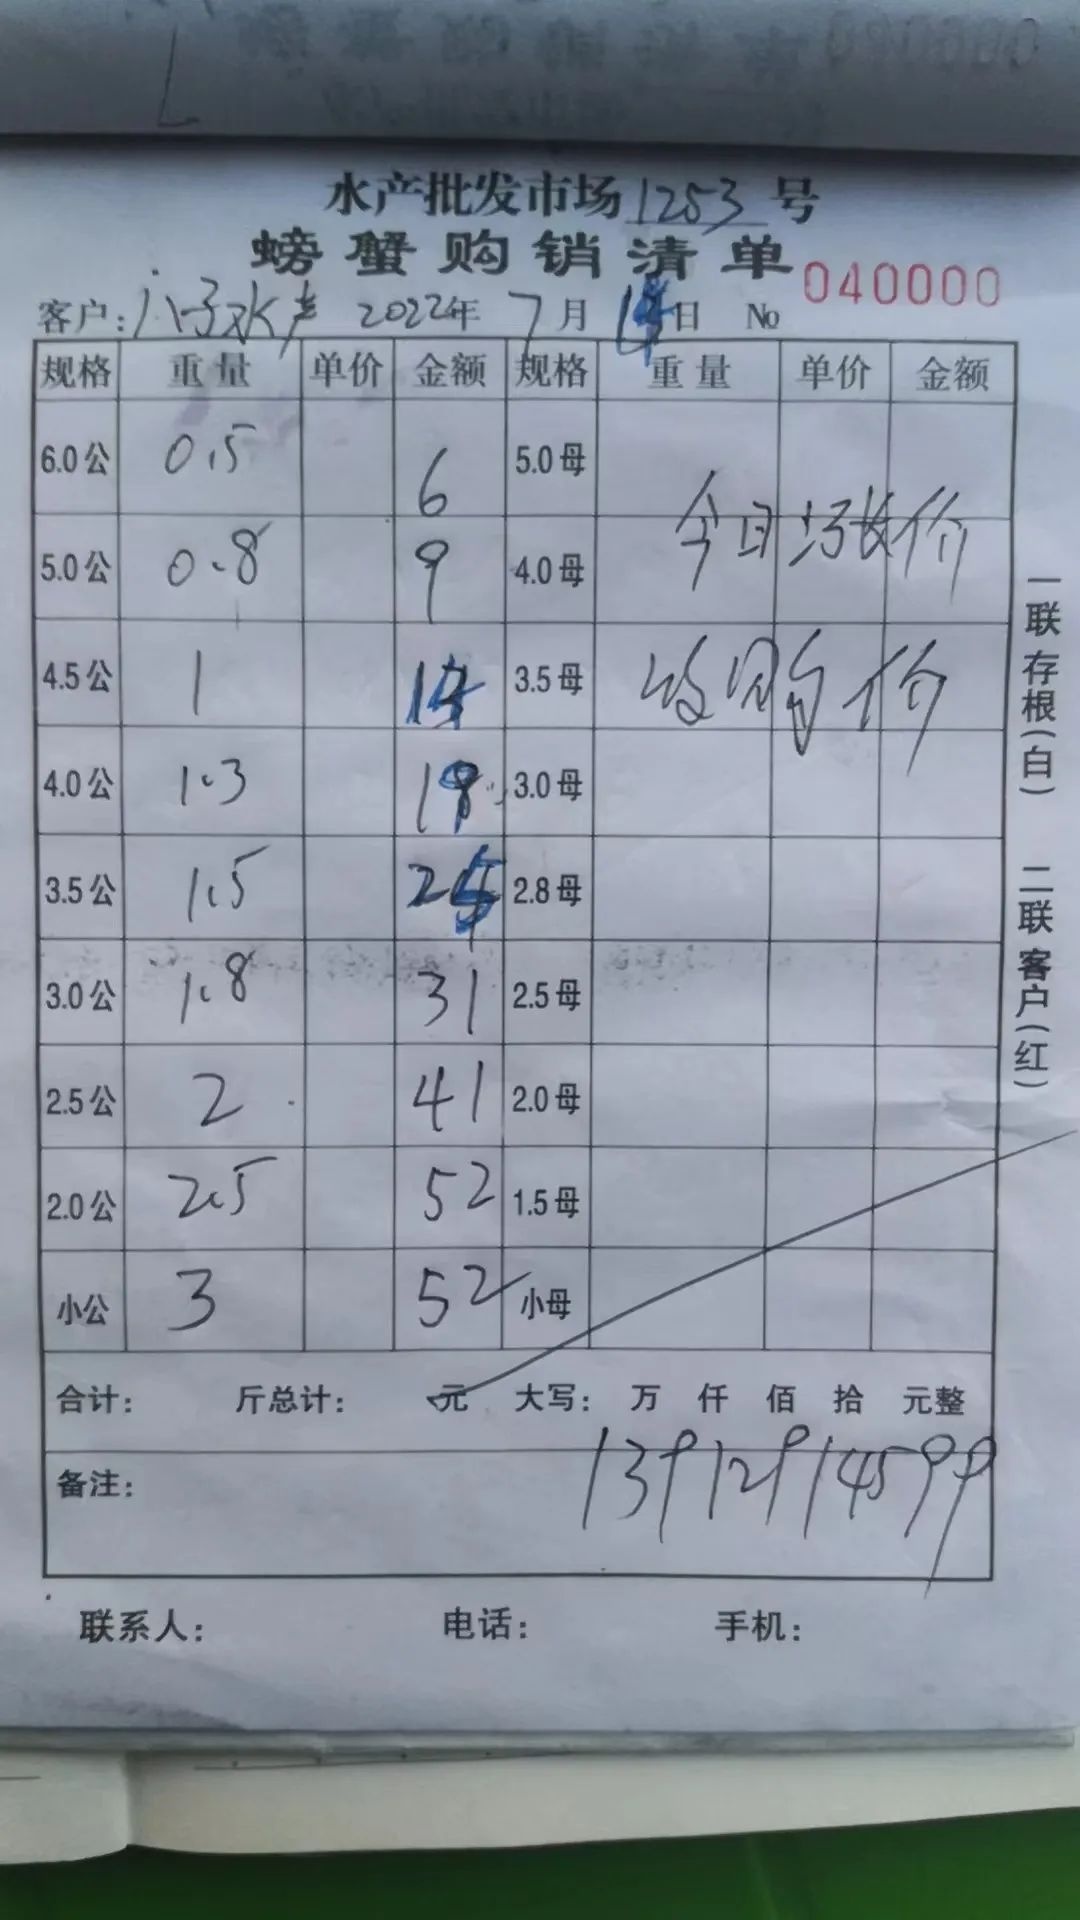 水产批发市场1253号
螃蟹购销清单
040000
客户:八子水产 2022年 7月 日 No
规格 重量 单价 金额 规格 重量 单价 金额
6.0公 0.5 6 5.0母
今日涨价
5.0公 0.8 9 4.0母
4.5公 1 3.5母
收购价
4.0公 1.3 3.0母
3.5公 1.5 25 2.8母
3.0公 1.8 31 2.5母
2.5公 2 41 2.0母
2.0公 2.5 52 1.5母
小公 3 52 小母
合计: 斤总计: 元 大写: 万 仟 佰 拾 元整
备注: 13912914599
联系人: 电话: 手机:
一联存根(白) 二联客户(红)